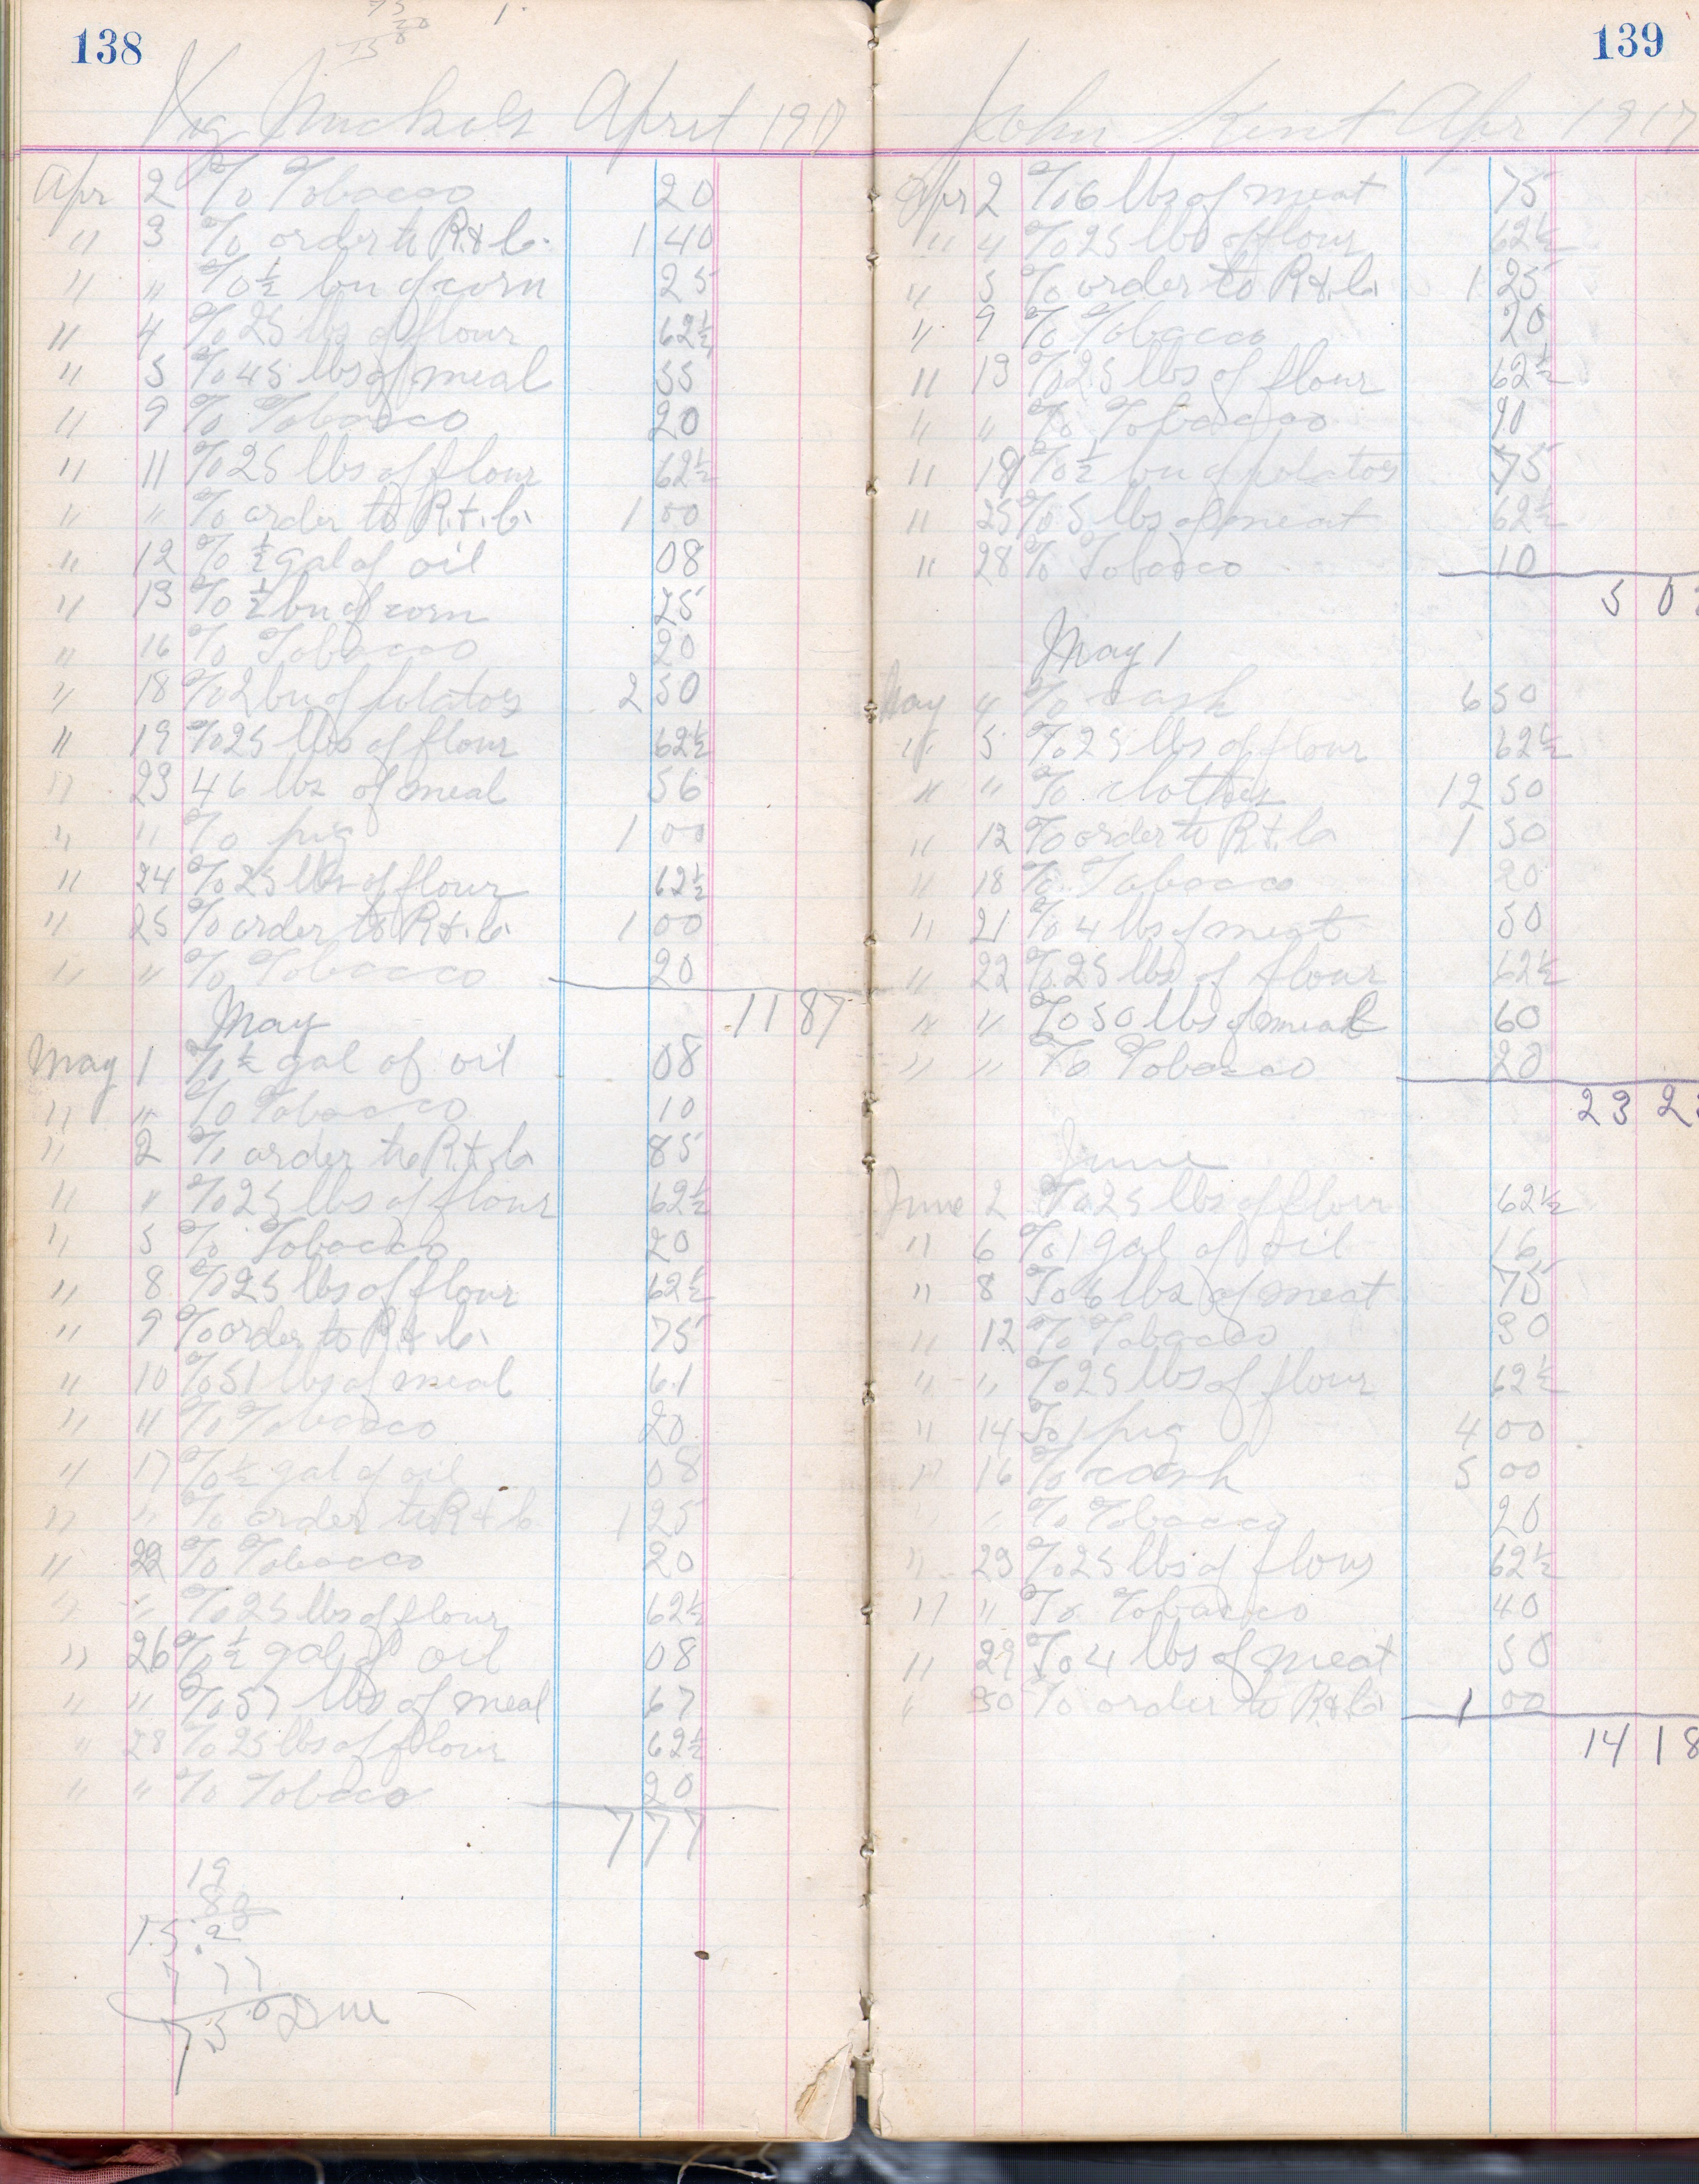 138
Nichols April 1917
Apr 2 To Tobacco 20
" 3 To order to R. & Co. 1 40
" " To ½ bu of corn 25
" 4 To 25 lbs of flour 62½
" 5 To 45 lbs of meal 55
" 9 To Tobacco 20
" 11 To 25 lbs of flour 62½
" " To order to R. & Co. 1 00
" 12 To ½ gal of oil 08
" 13 To ½ bu of corn 25
" 16 To Tobacco 20
" 18 To 2 bu of potatoes 2 50
" 19 To 25 lbs of flour 62½
" 23 46 lbs of meal 56
" " To pig 1 00
" 24 To 25 lbs of flour 62½
" 25 To order to R. & Co. 1 00
" " To Tobacco 20
11 87
May
May 1 To ½ gal of oil 08
" " To Tobacco 10
" 2 To order to R. & Co 85
" " To 25 lbs of flour 62½
" 5 To Tobacco 20
" 8 To 25 lbs of flour 62½
" 9 To order to R. & Co. 75
" 10 To 51 lbs of meal 61
" 11 To Tobacco 20
" 17 To ½ gal of oil 08
" " To order to R & Co 1 25
" 22 To Tobacco 20
" " To 25 lbs of flour 62½
" 26 To ½ gal of oil 08
" " To 57 lbs of meal 67
" 28 To 25 lbs of flour 62½
" " To Tobaco 20
7 77
19
15.2
7 77
Due
139
John Kent Apr 1917
Apr 2 To 6 lbs of meat 75
" 4 To 25 lbs of flour 62½
" 5 To order to R. & Co. 1 25
" 9 To Tobacco 20
" 13 To 25 lbs of flour 62½
" " To Tobacco 10
" 18 To ½ bu of potatoes 75
" 25 To 5 lbs of meat 62½
" 28 To Tobacco 10
5 0
May 1
May 4 To cash 6 50
" 5 To 25 lbs of flour 62½
" " To clothes 12 50
" 12 To order to R. & Co 1 50
" 18 To Tobacco 20
" 21 To 4 lbs of meat 50
" 22 To 25 lbs of flour 62½
" " To 50 lbs of meal 60
" " To Tobacco 20
23 2
June
June 2 To 25 lbs of flour 62½
" 6 To 1 gal of oil 16
" 8 To 6 lbs of meat 75
" 12 To Tobacco 30
" " To 25 lbs of flour 62½
" 14 To 1 pig 4 00
" 16 To cash 5 00
" " To Tobacco 20
" 23 To 25 lbs of flour 62½
" " To Tobacco 40
" 29 To 4 lbs of meat 50
" 30 To order to R. & Co. 1 00
14 18